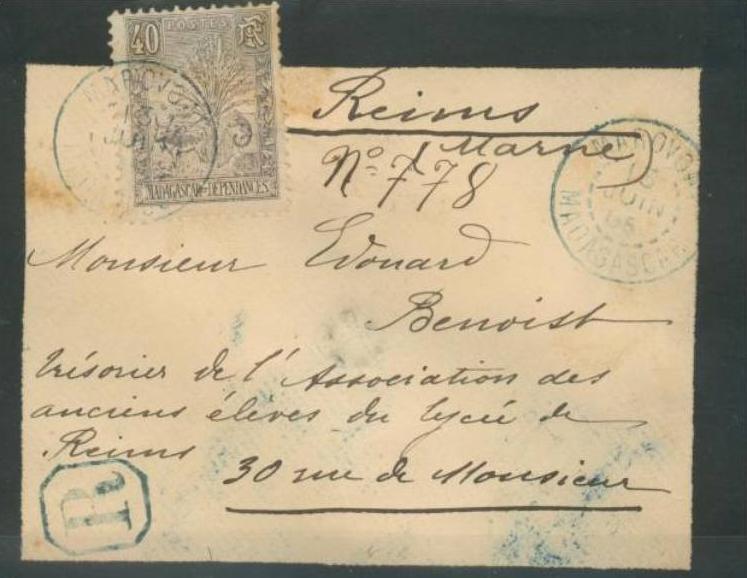 40
POSTES
RF
MADAGASCAR ET DEPENDANCES
MAROVOAY
JUIN
Reims
(Marne)
N° 778
MAROVOAY
13
JUIN
05
MADAGASCAR
Monsieur Edouard
Benoist
trésorier de l'Association des
anciens élèves du lycée de
Reims
30 rue de Monsieur
R